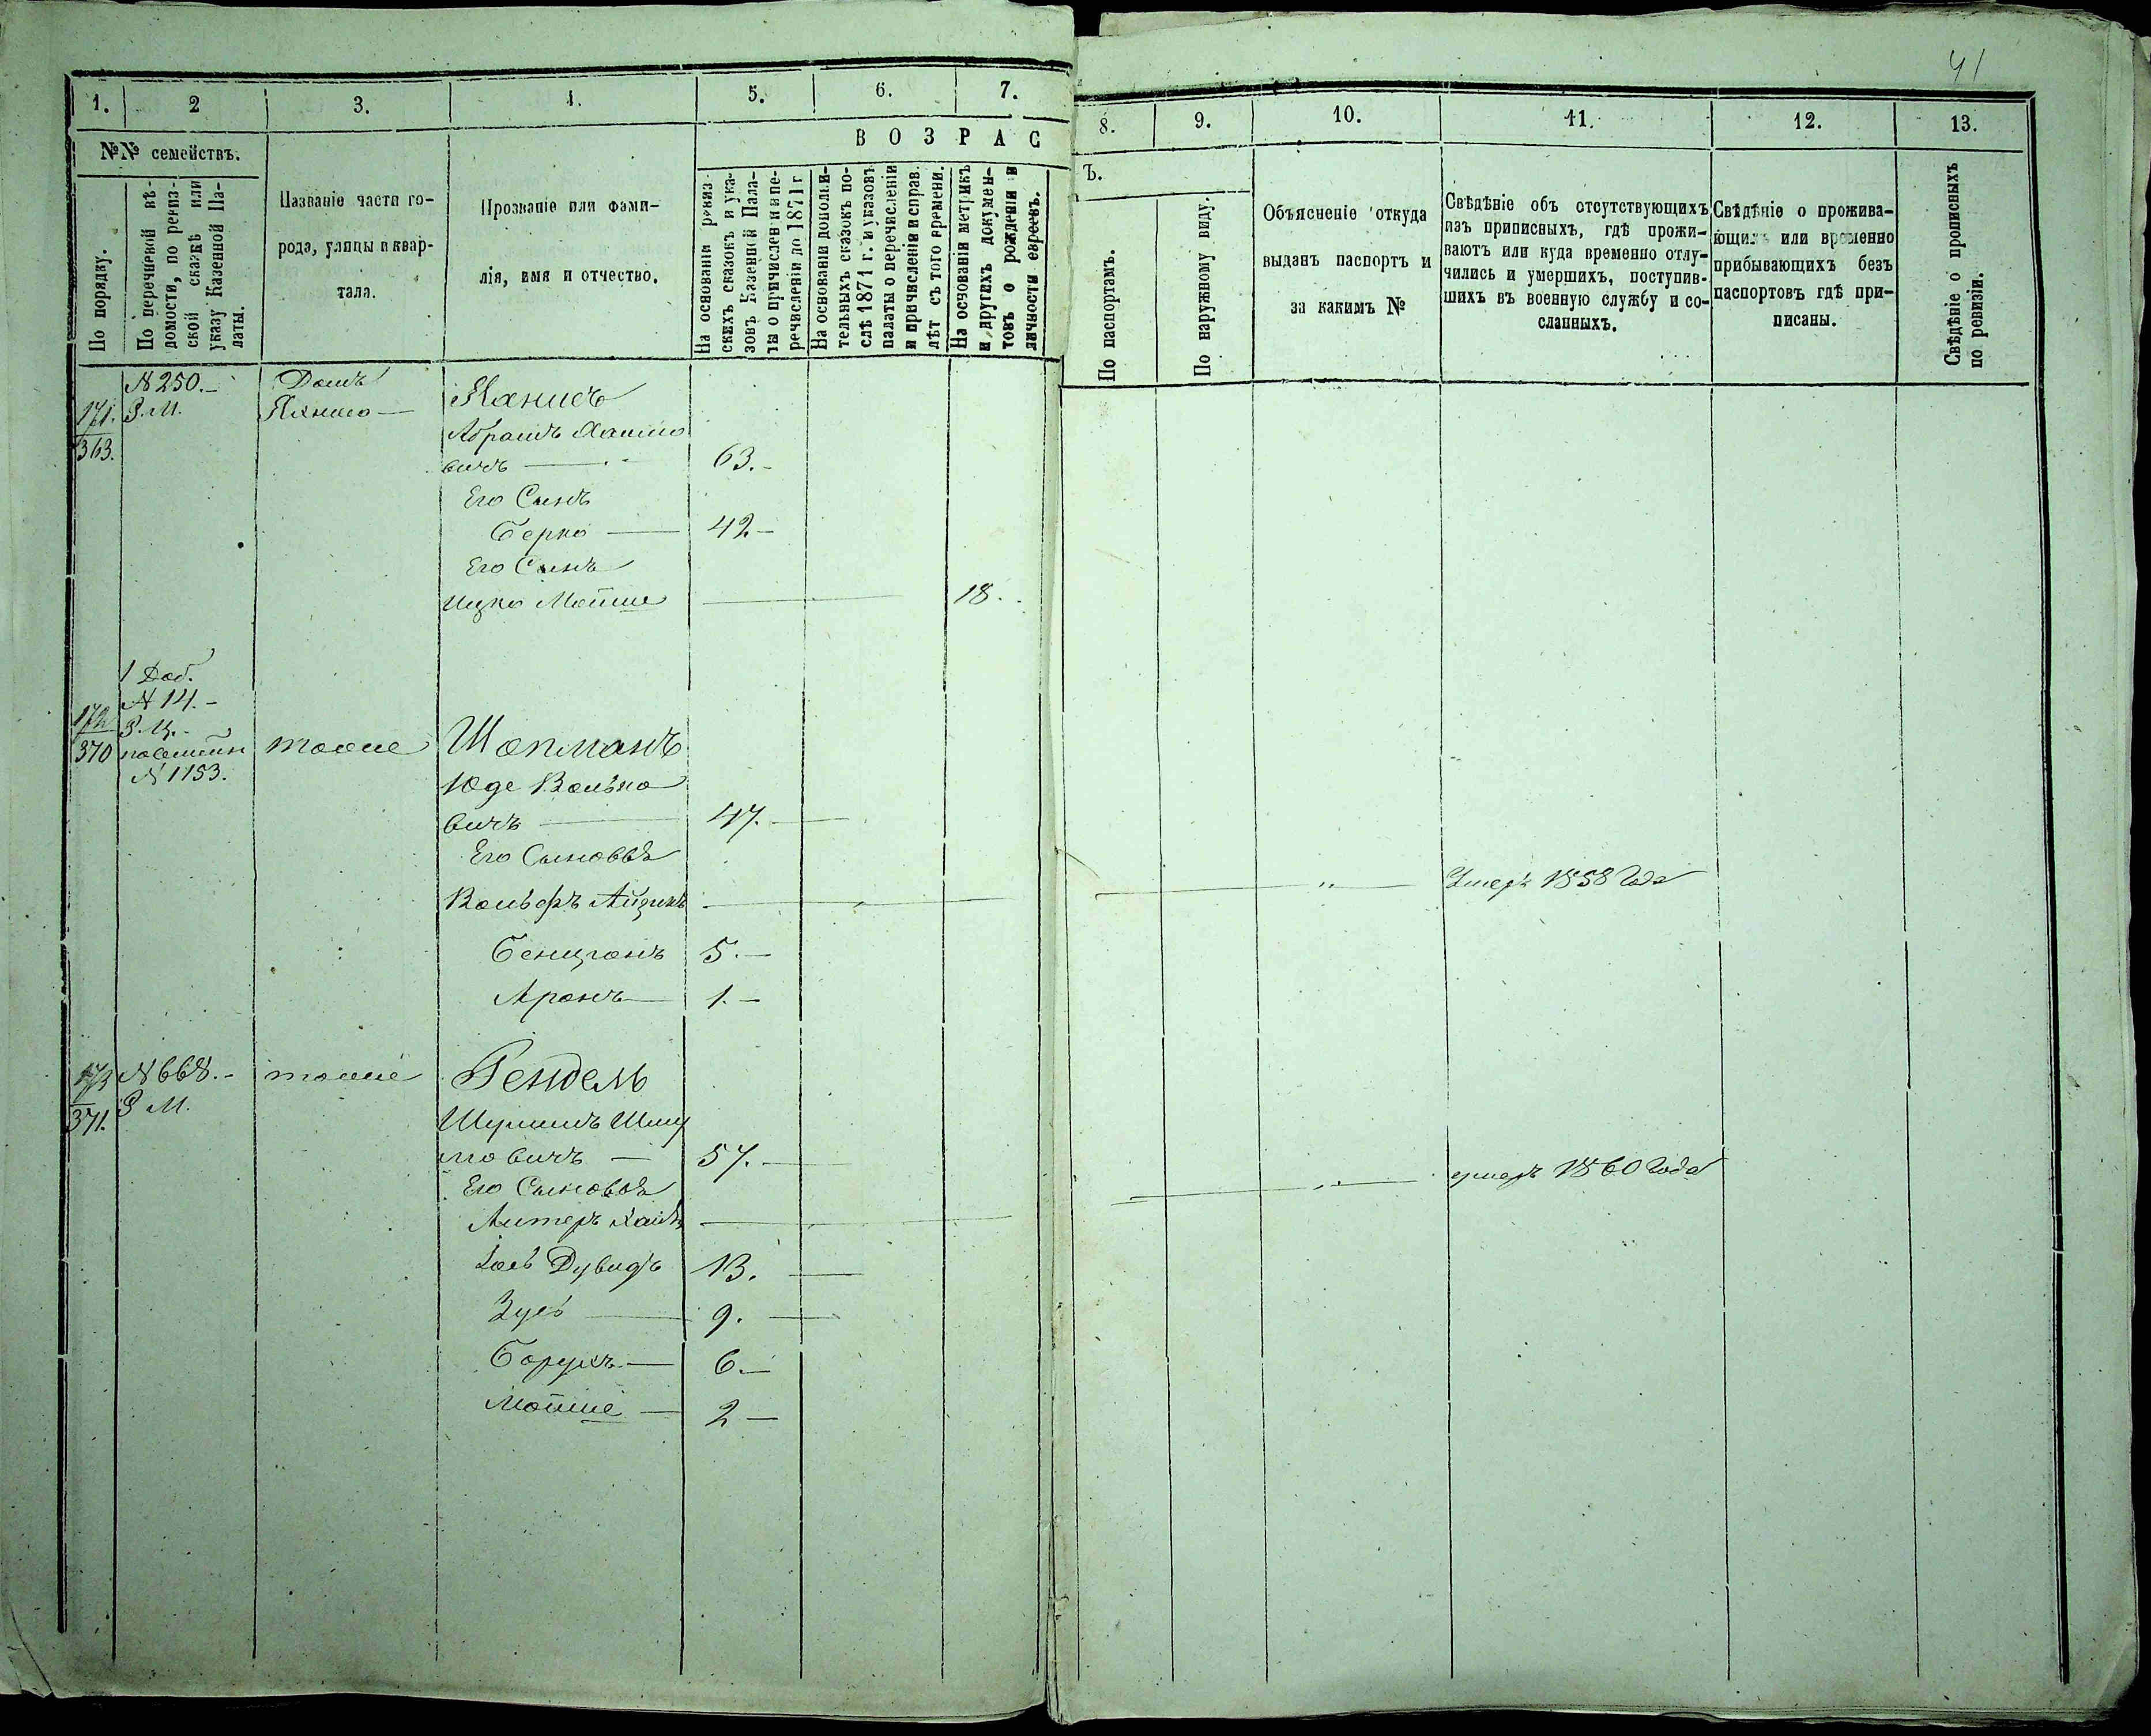 41
1.
2
3.
4.
5.
6.
7.
8.
9.
10.
11.
12.
13.
№№ семействъ.
По порядку.
По перечневой вѣ-
домости, по ревиз-
ской сказкѣ или
указу Казенной Па-
латы.
Названіе части го-
рода, улицы и квар-
тала.
Прозваніе или фами-
лія, имя и отчество.
ВОЗРАС
Ъ.
На основаніи ревиз-
скихъ сказокъ и ука-
зовъ Казенной Пала-
ты о причисленіи и пе-
речисленіи до 1871 г
На основаніи дополни-
тельныхъ сказокъ по-
слѣ 1871 г. и указовъ
палаты о перечисленіи
и причисленіи и справ.
лѣт съ того времени.
На основаніи метрикъ
и другихъ докумен-
товъ о рожденіи и
личности евреевъ.
По паспортамъ.
По наружному виду.
Объясненіе откуда
выданъ паспортъ и
за какимъ №
Свѣдѣніе объ отсутствующихъ
изъ приписныхъ, гдѣ прожи-
ваютъ или куда временно отлу-
чились и умершихъ, поступив-
шихъ въ военную службу и со-
сланныхъ.
Свѣдѣніе о прожива-
ющихъ или временно
прибывающихъ безъ
паспортовъ гдѣ при-
писаны.
Свѣдѣніе о прописныхъ
по ревизіи.
171.
363.
N 250.-
Р. М.
Домъ
Абрамъ Хаимо
вичъ — 63.-
Его Сынъ
Берко — 42-
Его Сынъ
Ицко Мошше — 18.
1 Доб.
N 14.-
172
370
N 1153.
тоже
Шопманъ
Юде Волько
вичъ — 47.-
Его Сыновья
Вольфъ Айзикъ — " — Умеръ 1858 Года
Бенціонъ 5.-
Аронъ — 1.-
173
371.
N 668.-
Р М.
тоже
Гендель
Шуминъ Шму
ловичъ — 57.-
Его Сыновья
Алтеръ Хаимъ — умеръ 1860 Года
Іось Дувидъ 13.
Зусь — 9.
Борухъ — 6.-
Мошше — 2-